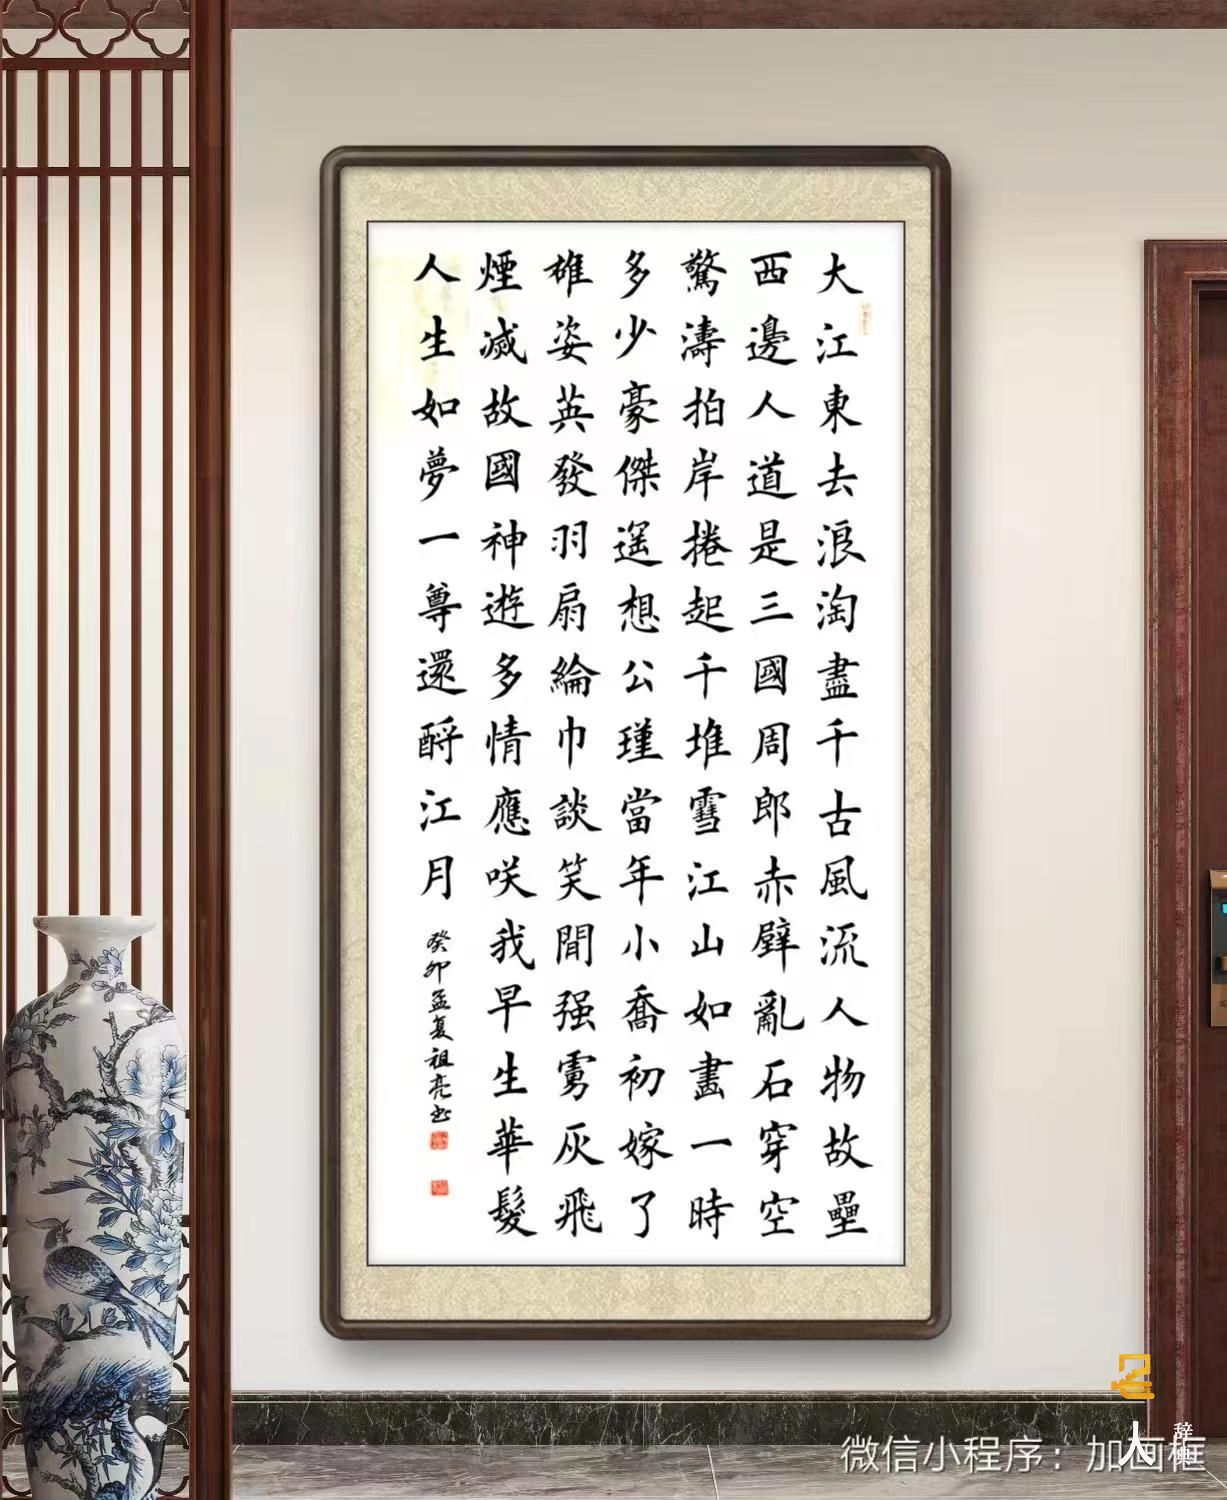 大江東去浪淘盡千古風流人物故壘
西邊人道是三國周郎赤壁亂石穿空
驚濤拍岸捲起千堆雪江山如畵一時
多少豪傑遥想公瑾當年小喬初嫁了
雄姿英發羽扇綸巾談笑間强虜灰飛
煙滅故國神遊多情應咲我早生華髮
人生如夢一尊還酹江月
癸卯孟夏祖亮书
微信小程序：加画框
名人
辞典